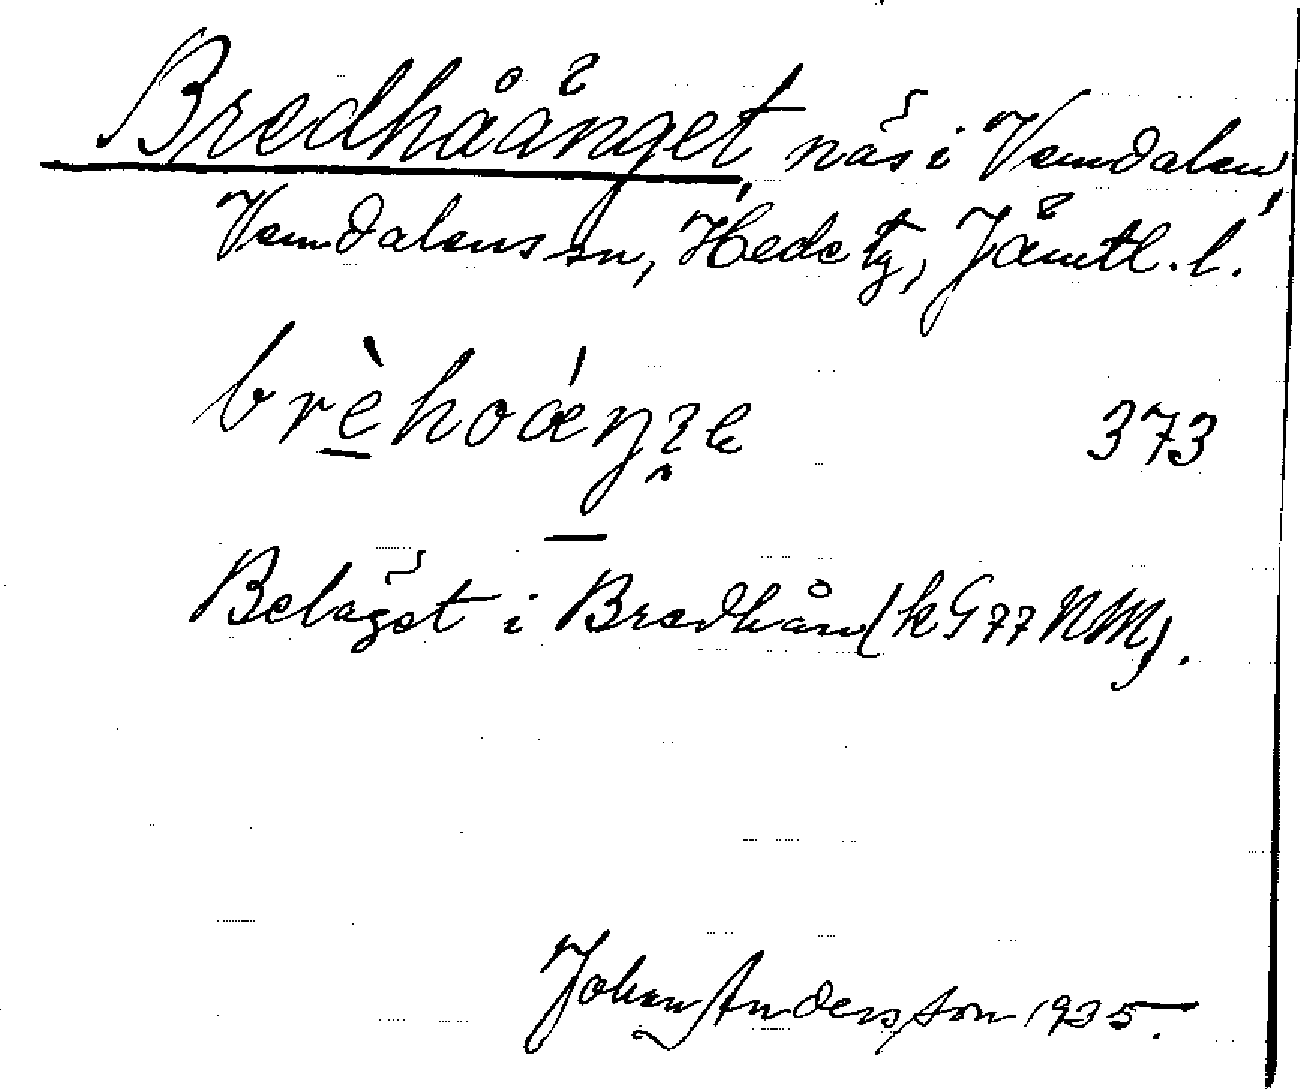 Bredhåänget, näs i Vemdalen,
Vemdalens sn, Hede tg, Jämtl. l.
brèhoáeŋɜe 373
Beläget i Bredhån (kG77NM).
Johan Andersson 1935.